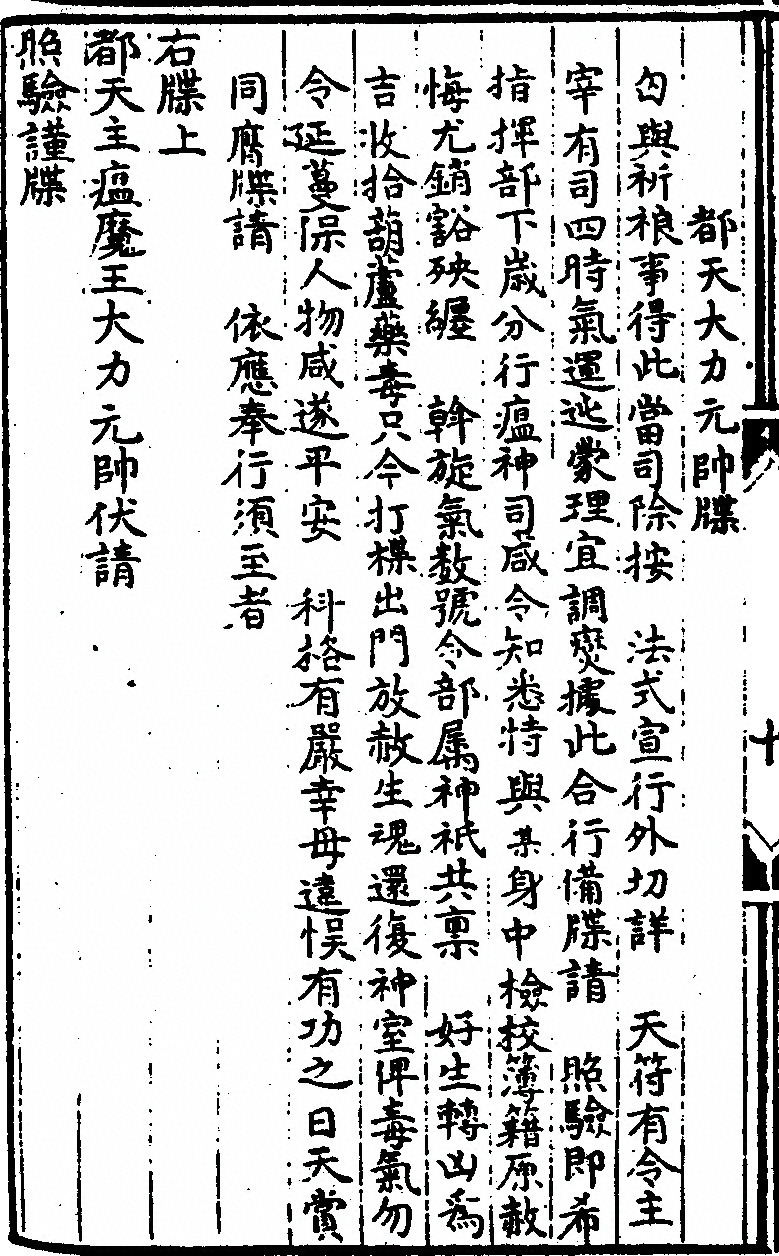 都天大力元帥牒
匃與祈禳事得此當司除按　法式宣行外切詳　天符有令主
宰有司四時氣運迯蒙理宜調爕據此合行備牒請　照驗即希
指揮部下歲分行瘟神司蒇令知悉特與某身中檢校簿籍原赦
悔尤銷豁殃纏　斡旋氣数號令部属神祇共禀　好生轉凶爲
吉收拾葫蘆藥毒只今打楪出門放赦生魂還復神室俾毒氣勿
令延蔓保人物咸遂平安　科格有嚴幸毋違悞有功之日天賞
同膺牒請　依應奉行須至者
右牒上
都天主瘟魔王大力元帥伏請
照驗謹牒
十